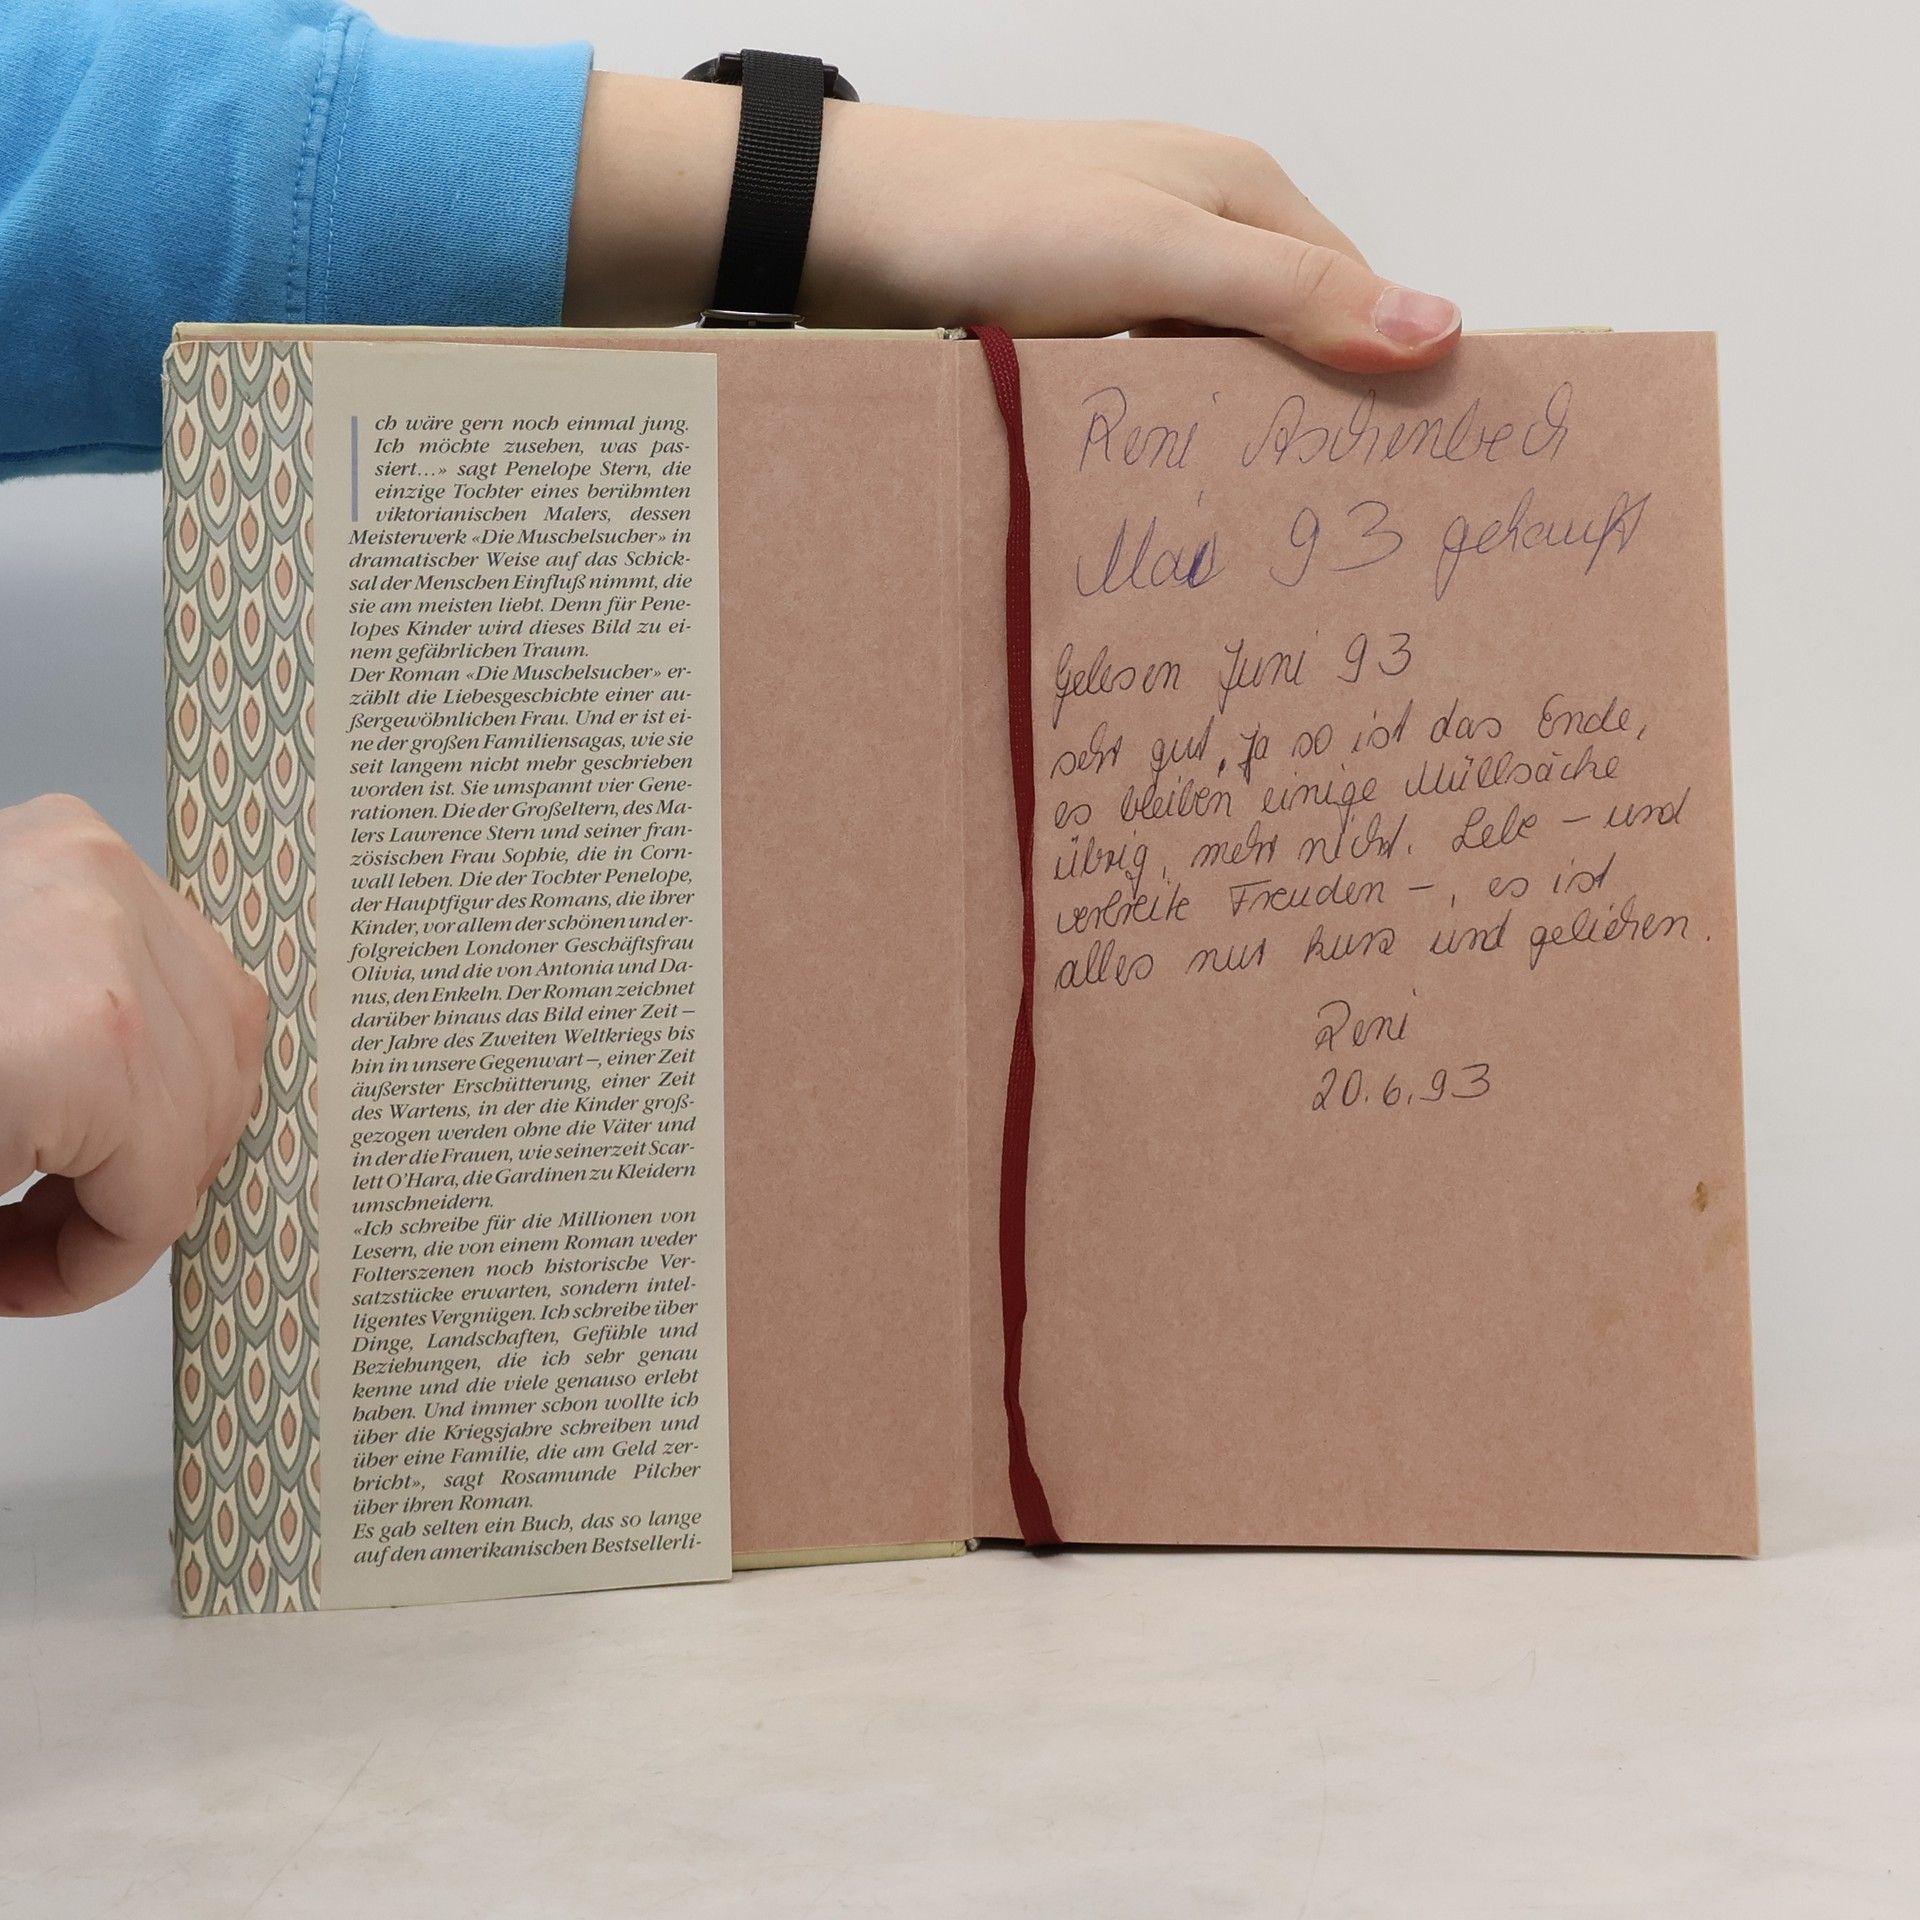 Ich wäre gern noch einmal jung.
Ich möchte zusehen, was pas-
siert...» sagt Penelope Stern, die
einzige Tochter eines berühmten
viktorianischen Malers, dessen
Meisterwerk «Die Muschelsucher» in
dramatischer Weise auf das Schick-
sal der Menschen Einfluß nimmt, die
sie am meisten liebt. Denn für Pene-
lopes Kinder wird dieses Bild zu ei-
nem gefährlichen Traum.
Der Roman «Die Muschelsucher» er-
zählt die Liebesgeschichte einer au-
ßergewöhnlichen Frau. Und er ist ei-
ne der großen Familiensagas, wie sie
seit langem nicht mehr geschrieben
worden ist. Sie umspannt vier Gene-
rationen. Die der Großeltern, des Ma-
lers Lawrence Stern und seiner fran-
zösischen Frau Sophie, die in Corn-
wall leben. Die der Tochter Penelope,
der Hauptfigur des Romans, die ihrer
Kinder, vor allem der schönen und er-
folgreichen Londoner Geschäftsfrau
Olivia, und die von Antonia und Da-
nus, den Enkeln. Der Roman zeichnet
darüber hinaus das Bild einer Zeit –
der Jahre des Zweiten Weltkriegs bis
hin in unsere Gegenwart –, einer Zeit
äußerster Erschütterung, einer Zeit
des Wartens, in der die Kinder groß-
gezogen werden ohne die Väter und
in der die Frauen, wie seinerzeit Scar-
lett O'Hara, die Gardinen zu Kleidern
umschneidern.
«Ich schreibe für die Millionen von
Lesern, die von einem Roman weder
Folterszenen noch historische Ver-
satzstücke erwarten, sondern intel-
ligentes Vergnügen. Ich schreibe über
Dinge, Landschaften, Gefühle und
Beziehungen, die ich sehr genau
kenne und die viele genauso erlebt
haben. Und immer schon wollte ich
über die Kriegsjahre schreiben und
über eine Familie, die am Geld zer-
bricht», sagt Rosamunde Pilcher
über ihren Roman.
Es gab selten ein Buch, das so lange
auf den amerikanischen Bestsellerli-
Reni Aschenbech
Mai 93 gekauft
Gelesen Juni 93
sehr gut, ja so ist das Ende,
es bleiben einige Müllsäcke
übrig, mehr nicht. Lebe – und
verbreite Freuden –, es ist
alles nur kurz und geliehen.
Reni
20.6.93